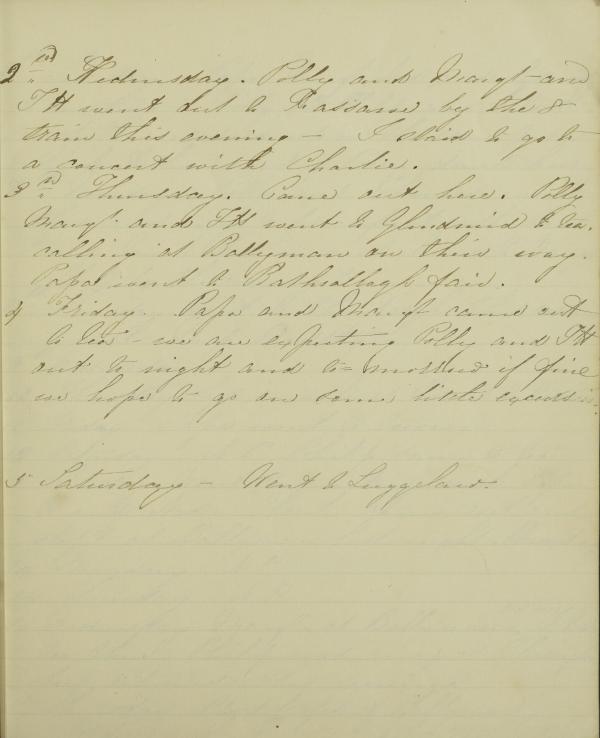 2nd Wednesday. Polly and Margt and
TH went out to Lassana by the 8
train this evening - I staid to go to
a concert with Charlie.
3rd Thursday. Came out here. Polly
Margt. and TH went to Glendruid to tea.
calling at Ballyman on their way.
Papa went to Rathsallagh fair.
4 Friday. Papa and Margt came out
to tea - we are expecting Polly and TH
out to night and to=morrow if fine
we hope to go on some little excursion.
5 Saturday - Went to Luggelaw.